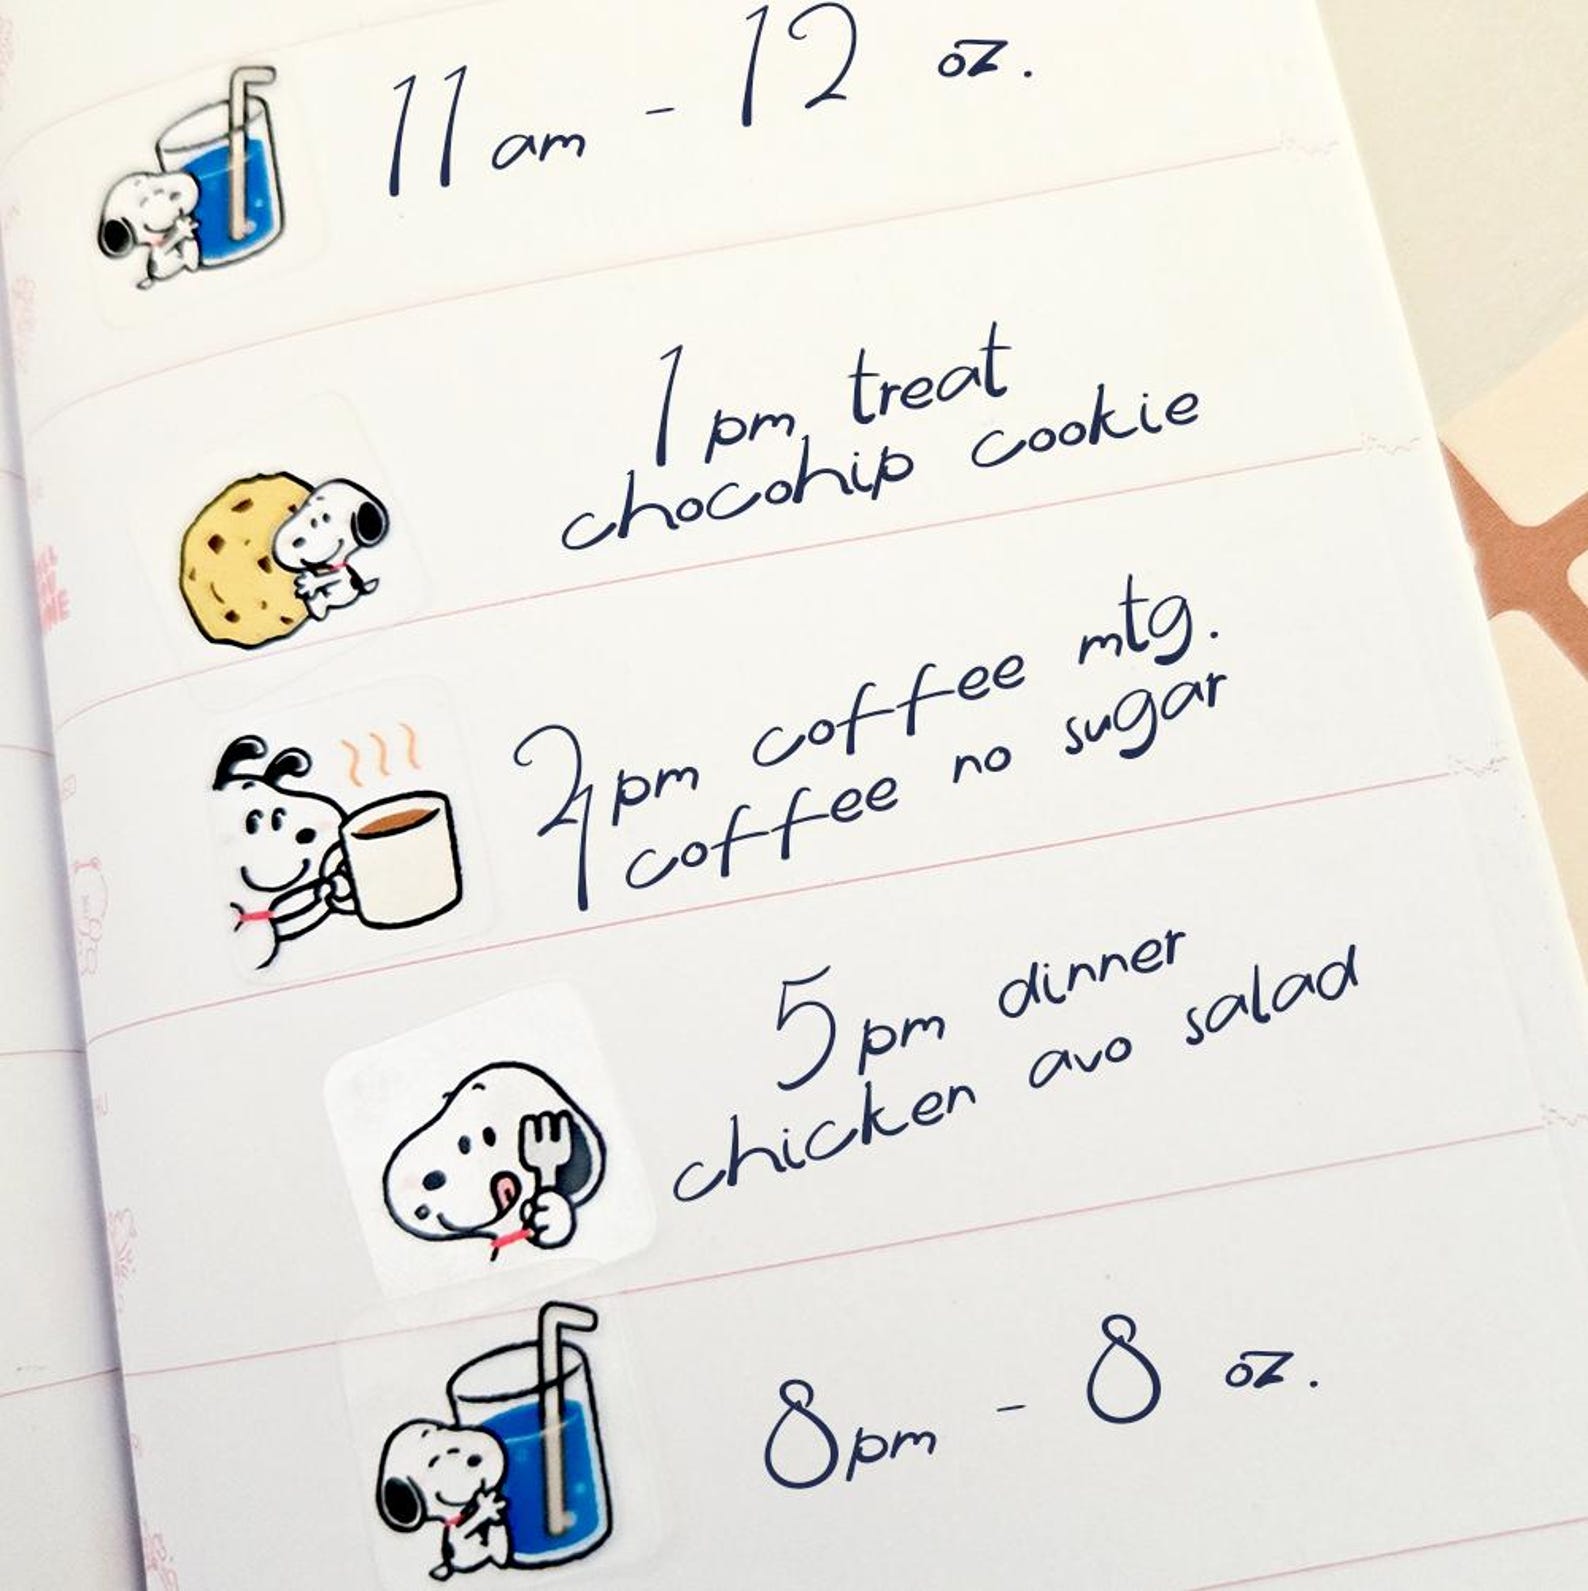 11am - 12 oz.
1pm treat
chocohip cookie
2pm coffee mtg.
1 coffee no sugar
5pm dinner
chicken avo salad
8pm - 8 oz.